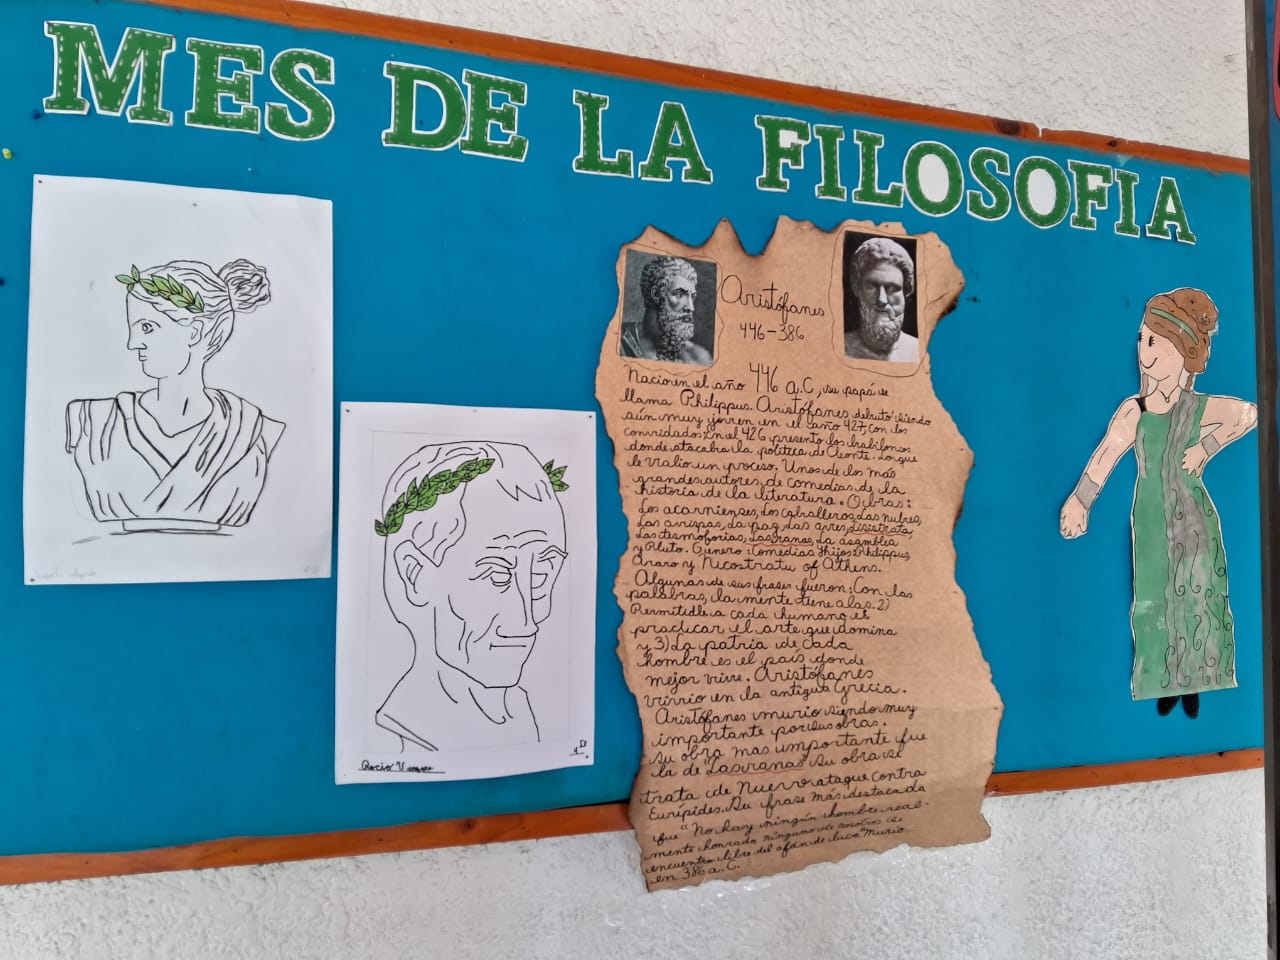 MES DE LA FILOSOFIA
Aristófanes
446-386
Nacio en el año 446 a.C, su papá se
llama Philippus. Aristófanes debutó siendo
aún muy joven en el año 427, con los
convidados. En el 426 presento los babilonios
donde atacaba la política de Cleonte. Lo que
le valio un proceso. Unos de los más
grandes autores de comedias de la
historia de la literatura. Obras:
Los acarnienses, Los caballeros, Las nubes,
Las avispas, La paz, Las aves, Lisistrata,
Las tesmoforias, Las ranas, La asamblea
y Pluto. Género: Comedias Hijos: Philippus,
Araro y Nicostratu of Athens.
Algunas de sus frases fueron: Con las
palabras, la mente tiene alas. 2)
Permitidle a cada humano el
practicar el arte que domina
y 3) La patria de cada
hombre es el país donde
mejor vive. Aristófanes
vivio en la antigua Grecia.
Aristófanes murio siendo muy
importante por sus obras.
Su obra mas importante fue
la de Las ranas su obra se
trata de Nuevo ataque contra
Eurípides. Su frase más destacada
fue "No hay ningún hombre real-
mente honrado ninguno de nosotros se
encuentra libre del afán de lucro" Murio
en 386 a.C.
Rocio
4